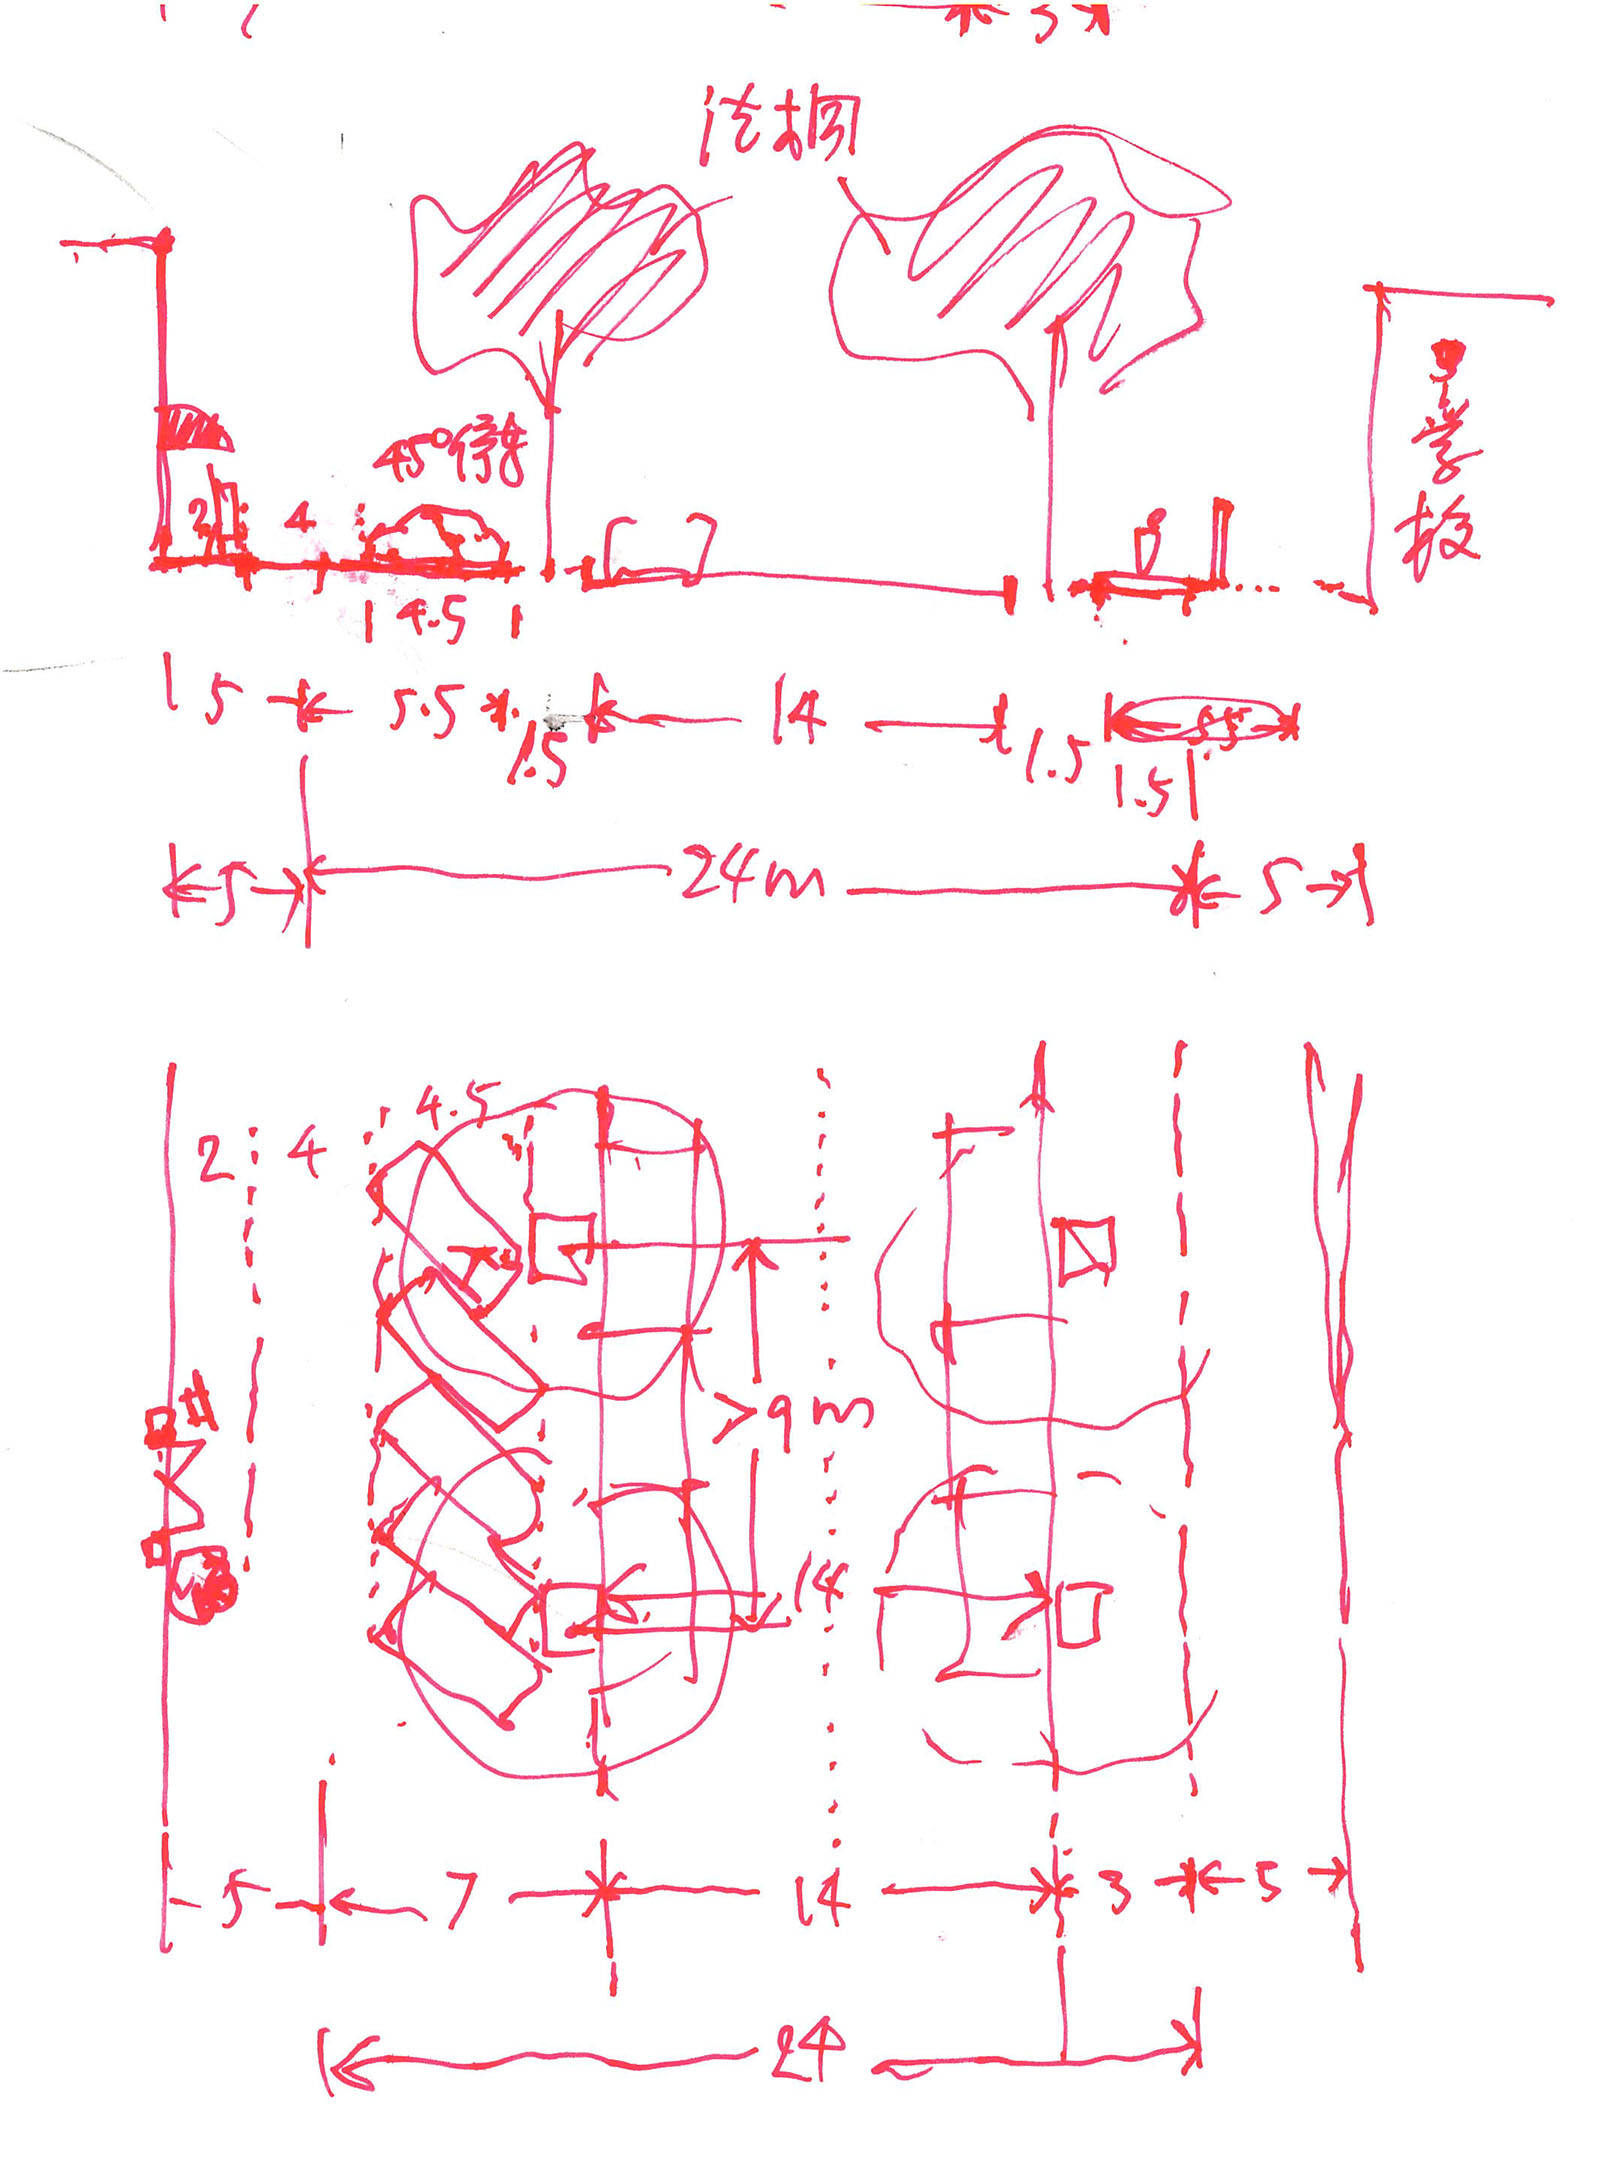 3
法桐
45°停
学
校
2 4
4.5
5 5.5 1.5 14 1.5 5.5
1.5
5 24m 5
2 4 4.5
>9m
14
5 7 14 3 5
24